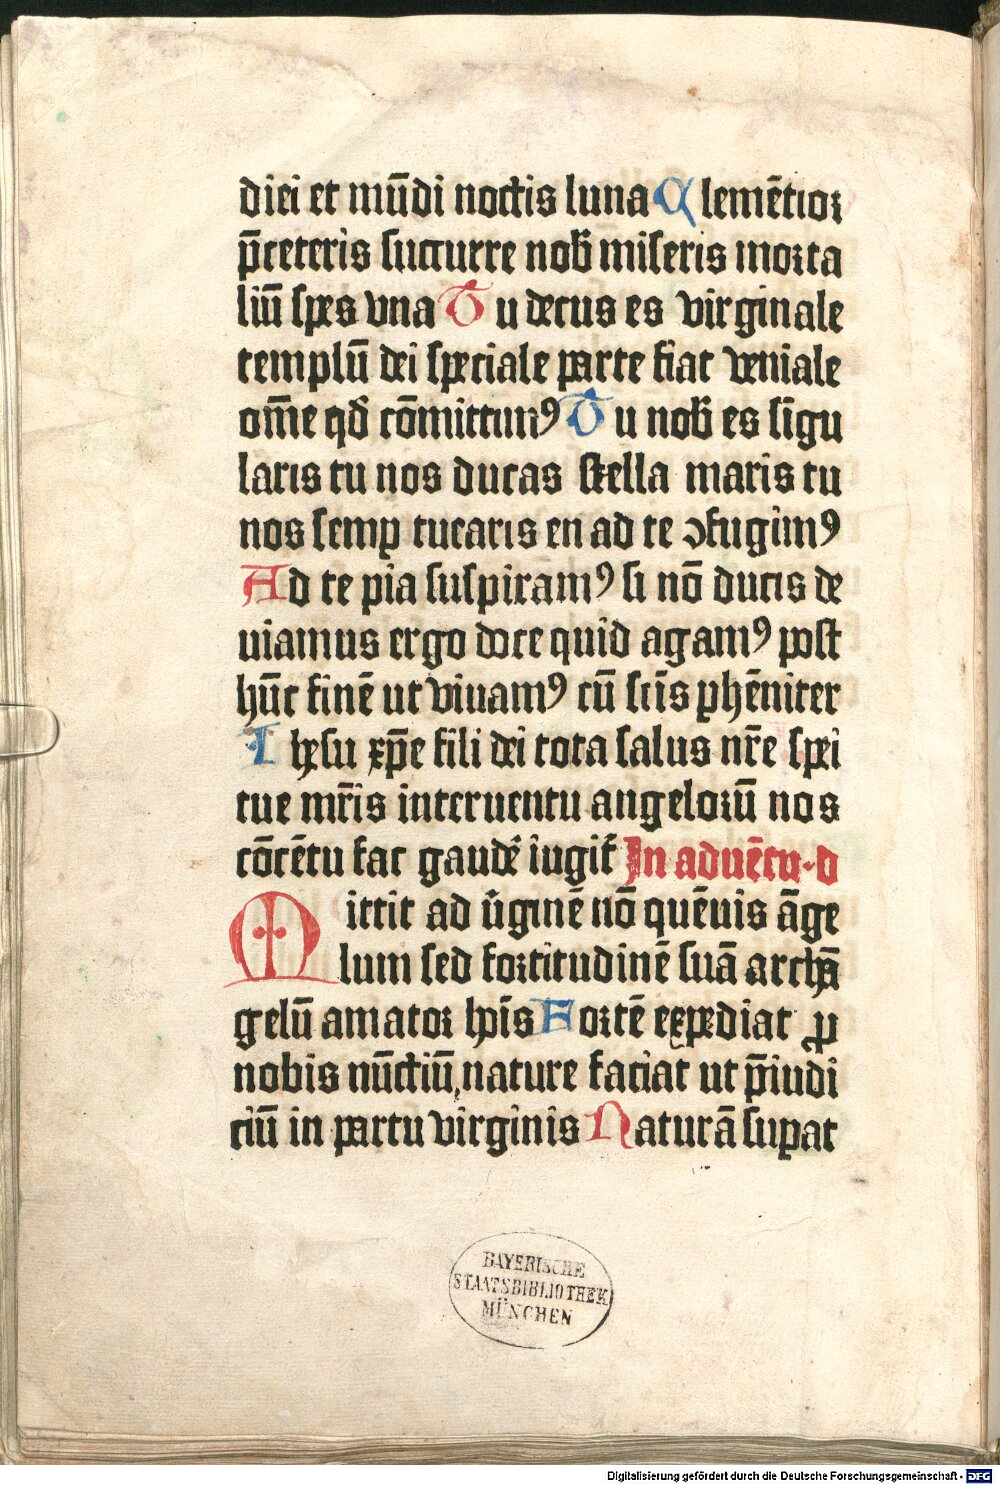 diei et mūdi noctis luna Clemētior
p̄ceteris succurre nob̄ miseris morta
liū spes vna Tu decus es virginale
templū dei speciale parte fiat veniale
om̄e qd̄ cōmittimꝰ Tu nob̄ es sīgu
laris tu nos ducas stella maris tu
nos semꝑ tuearis en ad te ↄfugimꝰ
Ad te pia suspiramꝰ si nō ducis de
uiamus ergo doce quid agamꝰ post
hūc finē ut viuamꝰ cū scīs ꝑhēniter
Ihesu xp̄e fili dei tota salus nr̄e spei
tue mr̄is interuentu angelorū nos
cōcētu fac gaudē iugit̄ In aduētu d
Mittit ad ūginē nō quēuis āge
lum sed fortitudinē suā archā
gelū amator hoīs Fortē expediat ꝓ
nobis nūctiū nature faciat ut p̄iudi
ciū in partu virginis Naturā suꝑat
BAYERISCHE
STAATSBIBLIOTHEK
MÜNCHEN
Digitalisierung gefördert durch die Deutsche Forschungsgemeinschaft - DFG